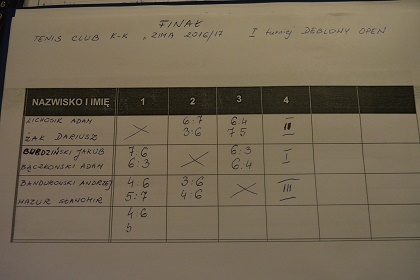 FINAŁ
TENIS CLUB K-K "ZIMA 2016/17 I turniej DEBLOWY OPEN
NAZWISKO I IMIĘ 1 2 3 4
LICHOSIK ADAM 6:7 6:4 II
ŻAK DARIUSZ 3:6 7 5
BURDZIŃSKI JAKUB 7:6 6:3 I
BĄCZKOWSKI ADAM 6:3 6:4
BANDUROWSKI ANDRZEJ 4:6 3:6 III
MAZUR SŁAWOMIR 5:7 4:6
4:6